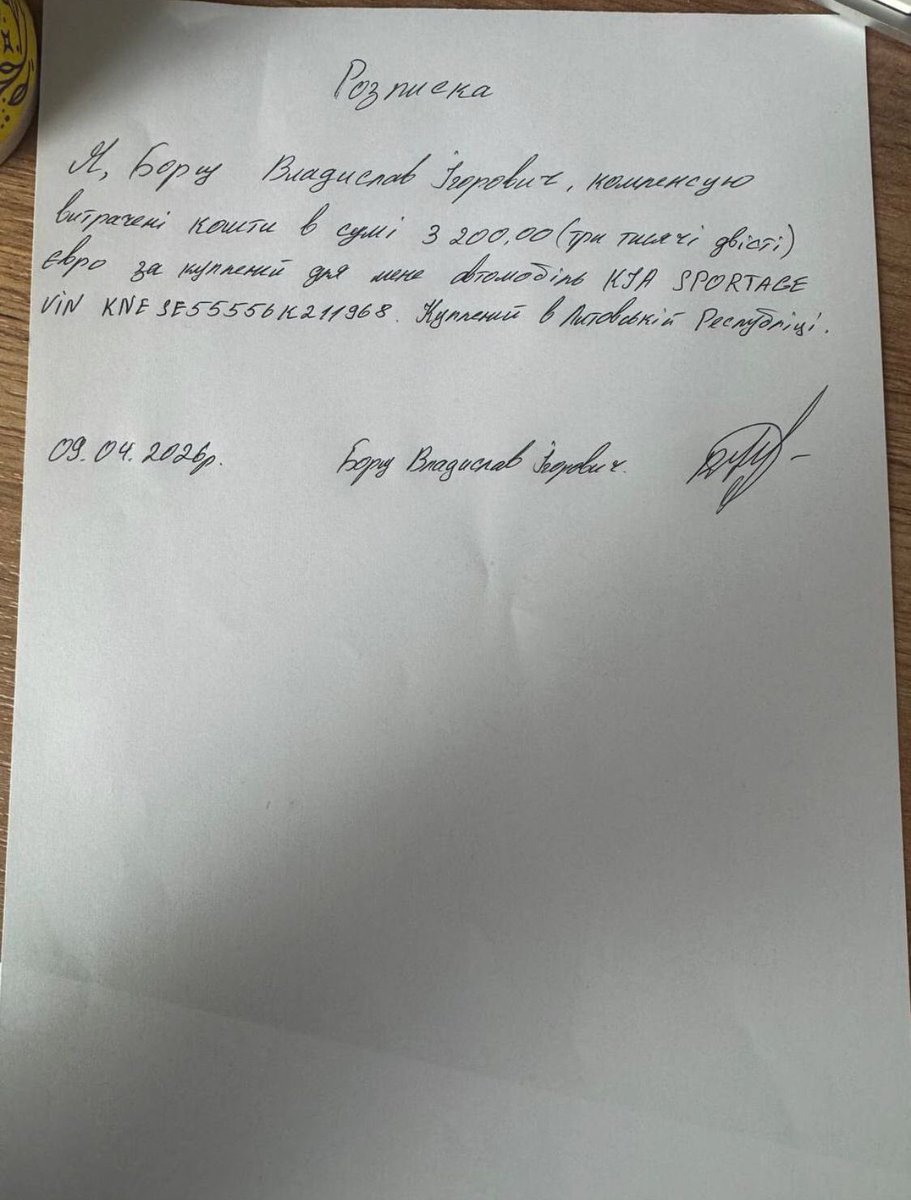 Розписка
Я, Борщ Владислав Ігорович, компенсую
витрачені кошти в сумі 3 200,00 (три тисячі двісті)
євро за куплений для мене автомобіль KIA SPORTAGE
VIN KNESE55556K211968. Куплений в Литовській Республіці.
09.04.2026р. Борщ Владислав Ігорович.